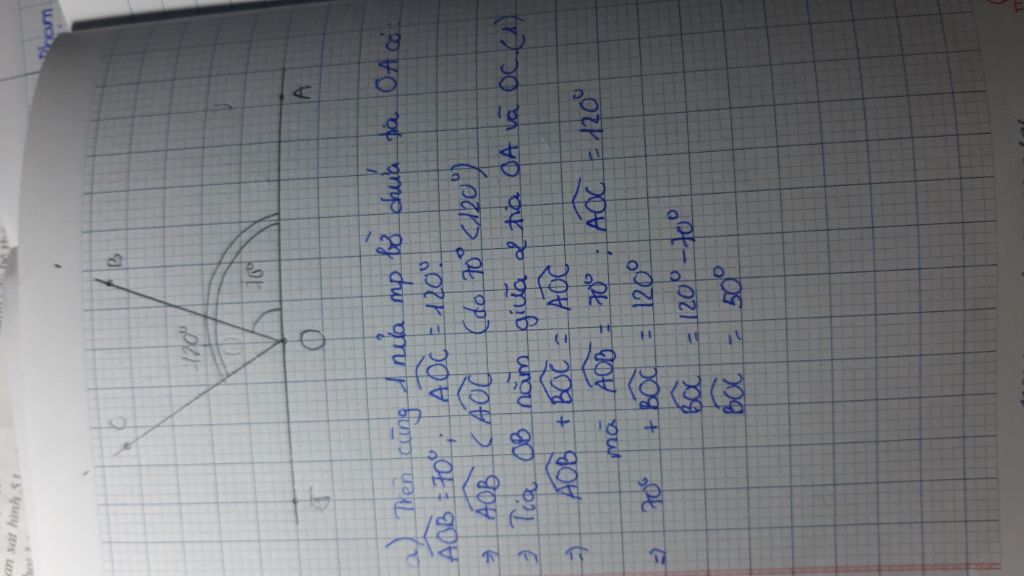 C
B
120°
70°
O
A
a) Trên cùng 1 nửa mp bờ chứa tia OA có:
AOB = 70°; AOC = 120°.
⇒ AOB < AOC (do 70° < 120°)
⇒ Tia OB nằm giữa 2 tia OA và OC (1)
⇒ AOB + BOC = AOC
mà AOB = 70°; AOC = 120°
⇒ 70° + BOC = 120°
BOC = 120° - 70°
BOC = 50°